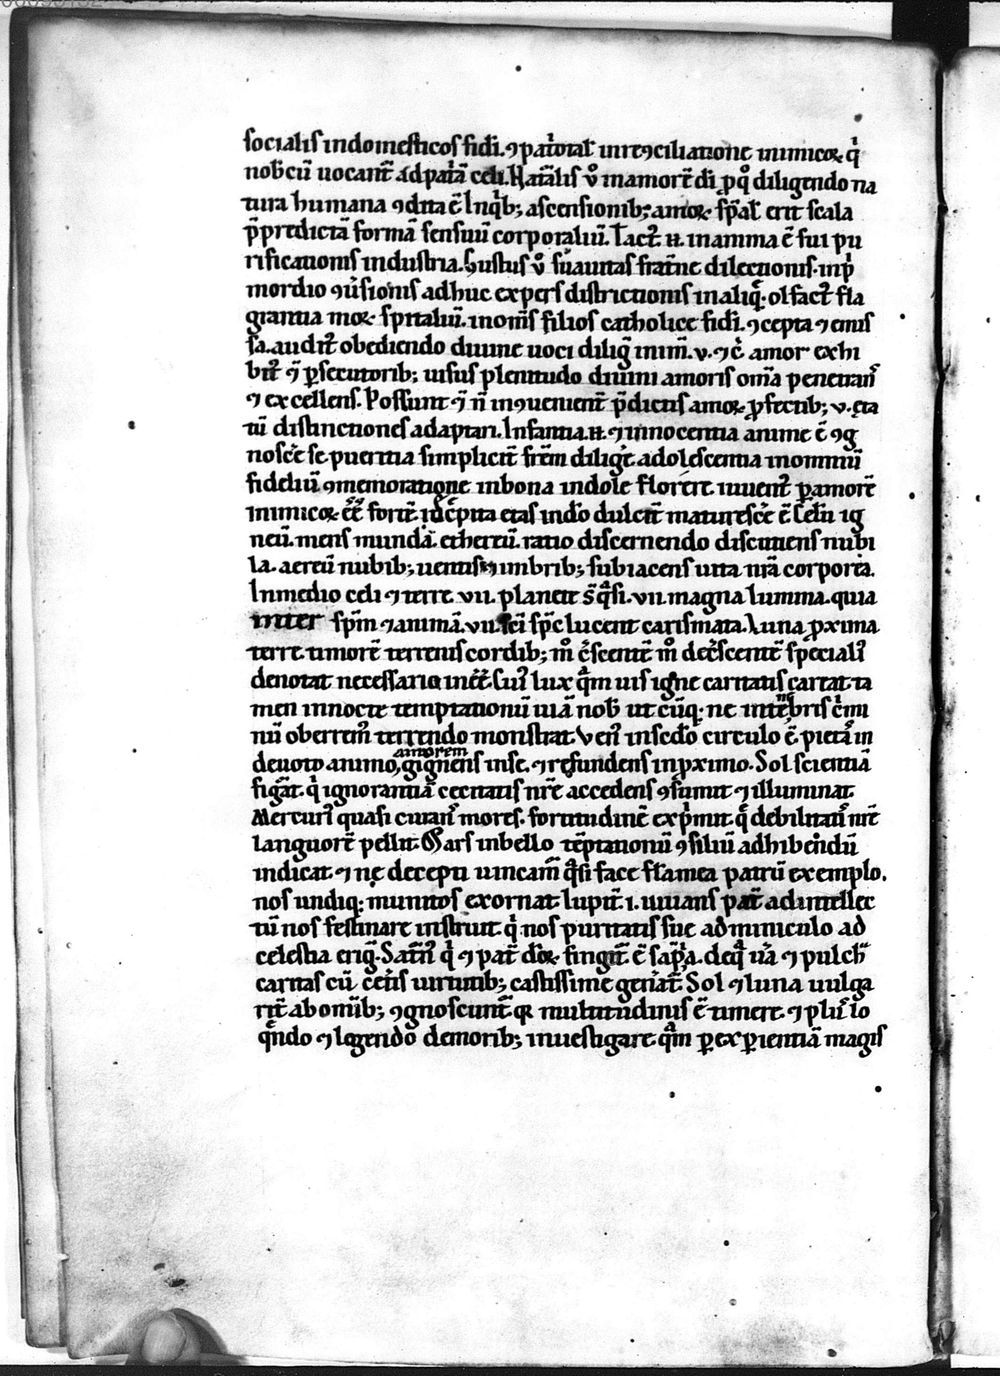 socialis indomesticos fidi. ꝯpat̾otal̾ inreꝯciliatione inimicoꝝ q̾
nob̾cū uocant̄ ad patiā celi. Natalis v̾o inamore d̄i ꝓq̾ diligendo na
tura humana ꝯdita ē Inqb; ascensionib; amoꝝ sp̄al̾ erit scala
p̄predictā formā sensuū corporaliū. Tact̾ n̄. inamma ē sui pu
rificationis industria. Gustus v̾o suauitas frat̾ne dilectionis. inp̾
mordio ꝯu̾sionis adhuc expers districtionis inaliq̾. olfact̾ fla
grantia moꝝ sp̄italiū. inom̄s filios catholice fidi. ꝯcepta ⁊ emis
sa. audit̾ obediendo diuine uoci dilig̾ inim̄. v. ⁊ c̾ amor exhi
bit̾ ⁊ ꝑsecutorib; uisus plenitudo diuini amoris om̄a penetran̄
⁊ excellens. Possunt ⁊ n̄ inꝯuenient̾ p̄dictis amoꝝ ꝓfectib; v. eta
tū distinctiones adaptari. Infantia. n̄. ⁊ innocentia anime ē ꝯg
nosce̾ se pueritia simplicit̾ frēm dilige̾ adolescentia inomniū
fideliū ꝯmemoratione inbona indole florere iuuent̾ ꝑ amorē
inimicoꝝ ēē forte̾ idecepita etas indo̾ dulcit̾ maturesce̾ ē Celū ig
neū. mens munda. ethereū. ratio discernendo discutiens nubi
la. aereū nubib; uentis ⁊ imbrib; subiacens uita nr̄a corporea.
Inmedio celi ⁊ terre .vii. planete s̄ q̾si .vii. magna lumina. quia
inter sp̄m ⁊ animā. vii. sc̄i sp̄c lucent carismata. Luna proxima
terre. timorē terrenis cordib; m̊ c̾scentē m̊ decrescentē special̾
denotat necessario inēē. Cui̾ lux q̾m uis igne caritatis careat ta
men innocte temptationū uiā nob̾ utcūq; ne intenebris c̾mi
nū oberrem̾ terrendo monstrat. Ven̾ insedo̾ circulo ē. pietā in
deuoto animo, amorem gignens inse. ⁊ refundens inproximo. Sol scientiā
figat̾. q̾ ignorantiā cecitatis nr̄e accedens ꝯsumit ⁊ illuminat.
Mercuri̾ quasi curan̄ mores. fortitudinē exp̾mit. q̄ debilitati nr̄e
languorē pellit. Mars inbello tēptationū ꝯsiliū adhibendū
indicat ⁊ ne decepti uincam̄ q̾si face flamea patrū exemplo.
nos undiq; munitos exornat. Iupit̾ .i. iuuans pat̾ adintellec
tū nos festinare instruit. q̾ nos puritatis sue adminiculo ad
celestia erig̾. Satn̾ q̾ ⁊ pat̾ do̾ꝝ fingit̾ ē sap̄ia. deq̾ u̾a ⁊ pulch̾
caritas cū cet̾is uirtutib; castissime generat̾. Sol ⁊ luna uulga
rit̾ abomib; ꝯgnoscunt̾ qꝛ multitudinis ē timere. ⁊ plu̾ lo
q̾ndo ⁊ legendo demorib; inuestigare. q̾m ꝑ expientiā magis